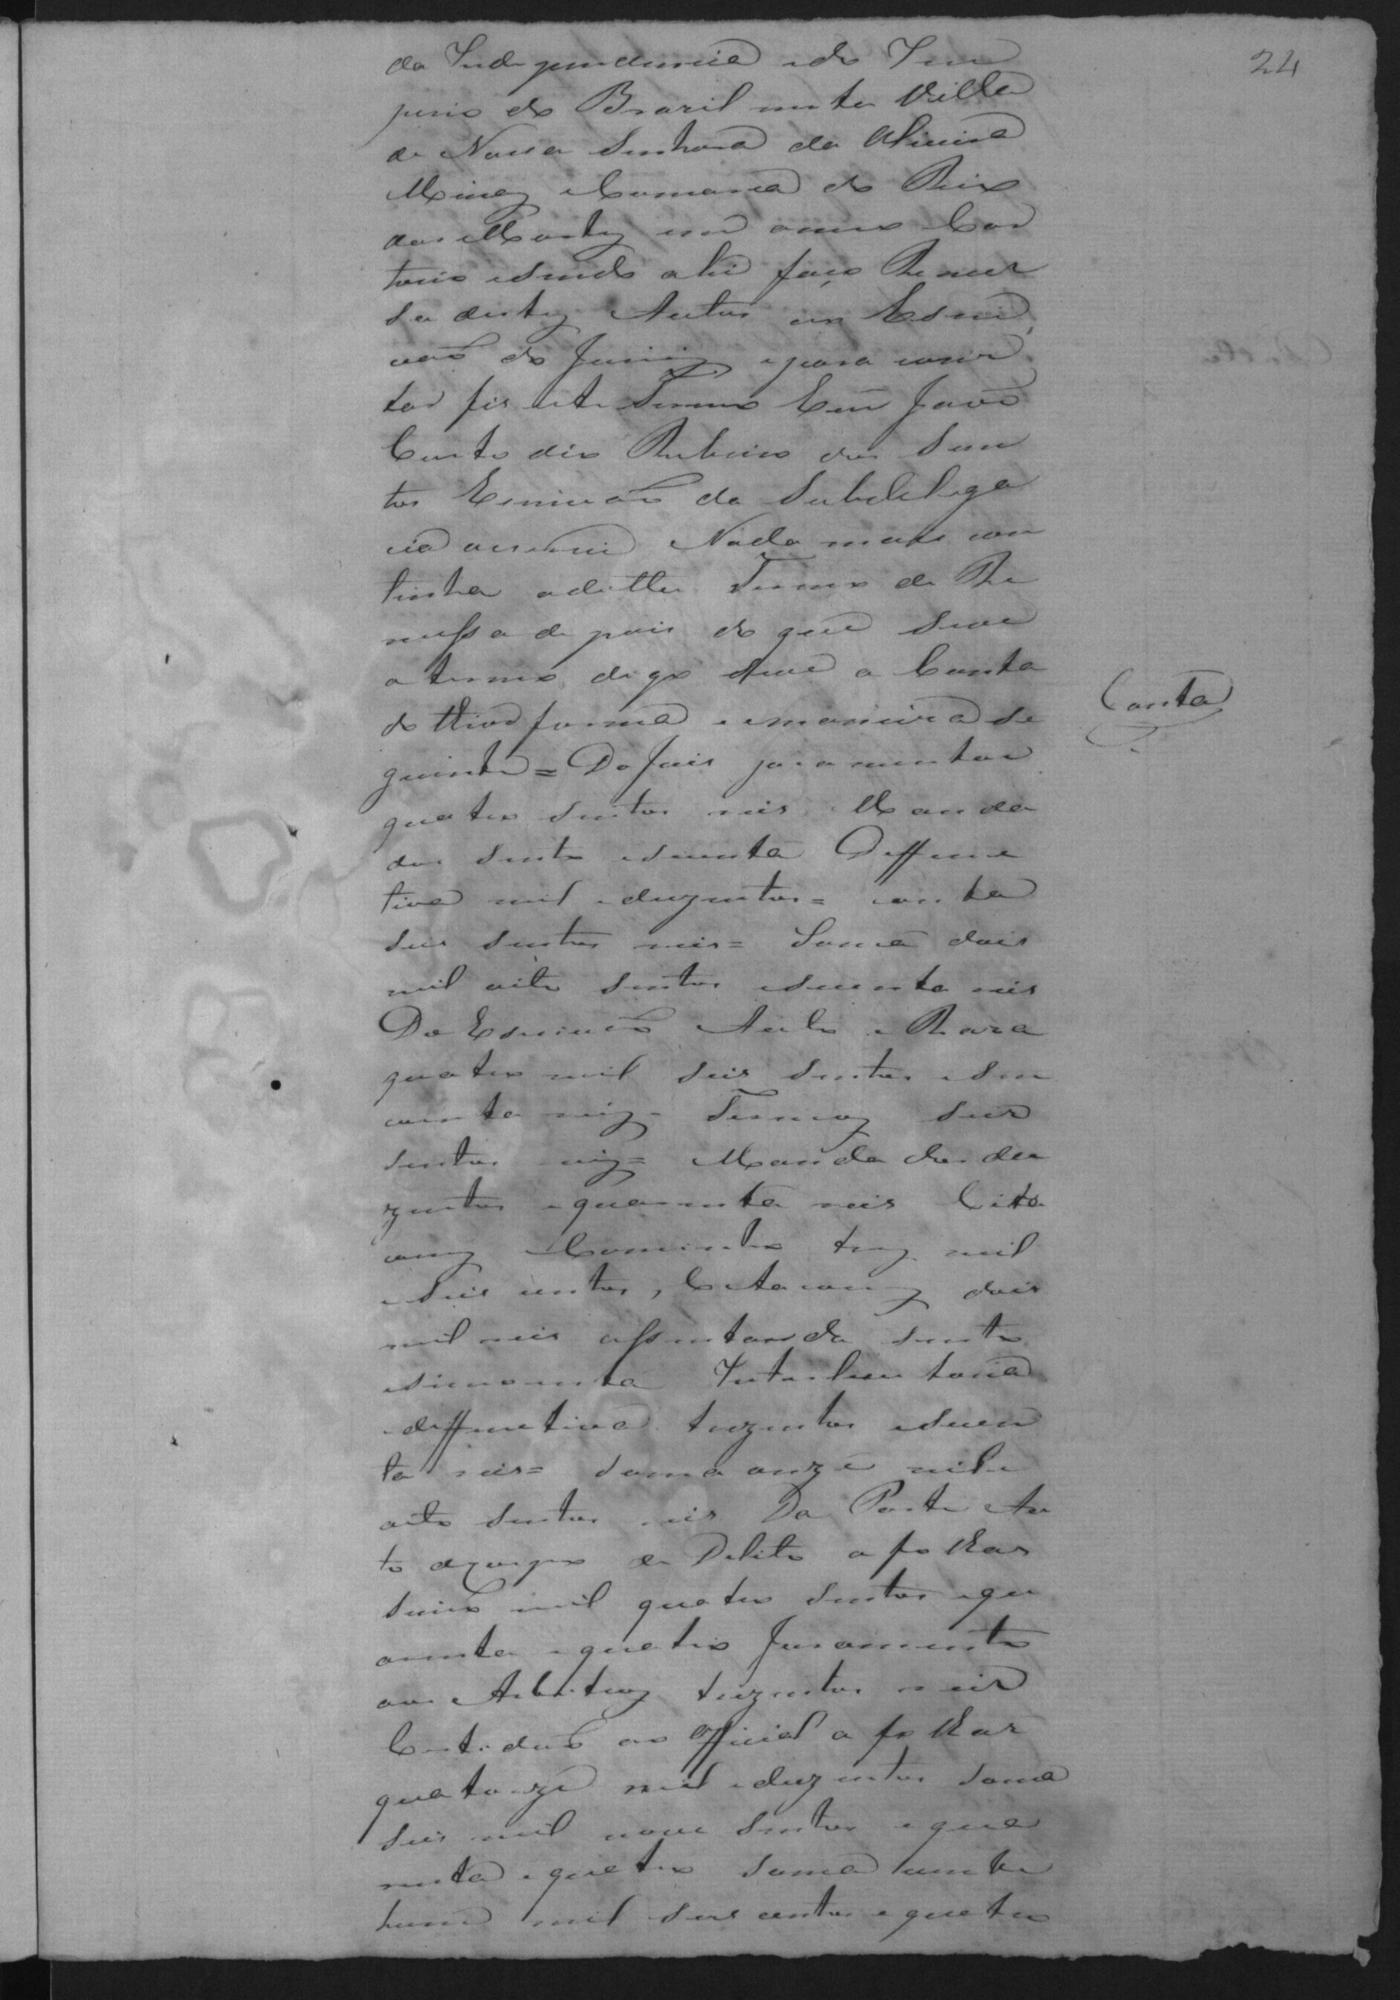 24
da Independencia e do Im
perio do Brazil nesta Villa
de Nossa Senhora da Oliveira
Minas e Comarca do Rio
das Mortes em o meu Car
torio e sendo ahi faço Remes
sa destes Autos ao Escri
vaõ do Jurii e para cons
tar fis este Termo Eu Joaõ
Ribeiro dos San
tos Escrivaõ da Subdelega
cia escrevi Nada mais con
tinha o dito Termo de Re
messa de pois do que se ve
o termo digo se ve a Conta
do thior forma e maneira se
guinte = Do Juis juramentos
quatro sentos reis Manda
dos sento e secenta Deffene
tiva mil e duzentos = conta
seis sentos reis = Soma dois
mil oito sentos e secenta reis
Do Escrivaõ Auto e Raza
quatro mil seis sentos e sin
coenta reis = Termos seis
sentos reis = Mandados du
zentos e quarenta reis Cita
coins Caminho tres mil
e seis centos, Citacoins dois
mil reis assentada sento
e sincoenta Interlucutoria
e deffenetiva trezentos e secen
ta reis = soma onze mil e
oito sentos reis Da Parte Au
to de corpo de Delito a folhas
sinco mil quatro sentos e qu
arenta e quatro Juramento
aos Arbitros trezentos reis
Certidaõ ao Official a folhas
quatorze mil e duzentos soma
seis mil nove sentos e qua
renta e quatro soma vinte
hum mil seis centos e quatro
Conta